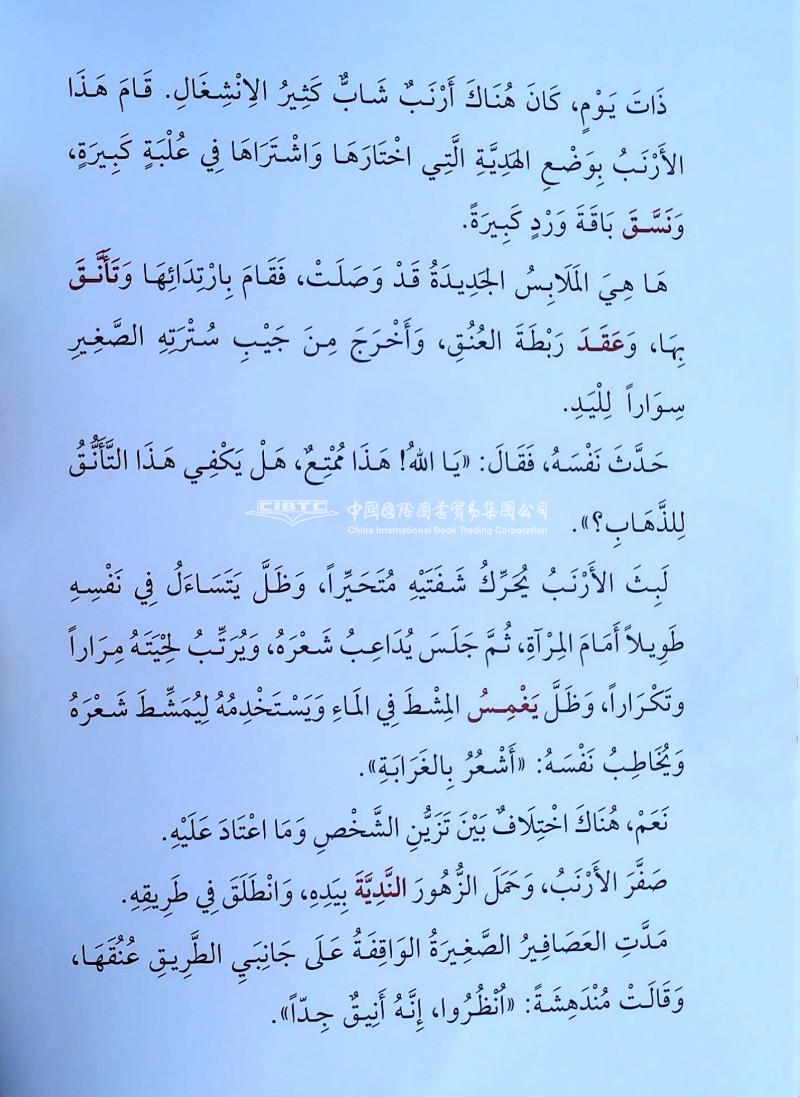 ذَاتَ يَوْمٍ، كَانَ هُنَاكَ أَرْنَبٌ شَابٌّ كَثِيرُ الِانْشِغَالِ. قَامَ هَذَا
الأَرْنَبُ بِوَضْعِ الهَدِيَّةِ الَّتِي اخْتَارَهَا وَاشْتَرَاهَا فِي عُلْبَةٍ كَبِيرَةٍ،
وَنَسَّقَ بَاقَةَ وَرْدٍ كَبِيرَةً.
هَا هِيَ المَلَابِسُ الجَدِيدَةُ قَدْ وَصَلَتْ، فَقَامَ بِارْتِدَائِهَا وَتَأَنَّقَ
بِهَا، وَعَقَدَ رَبْطَةَ العُنُقِ، وَأَخْرَجَ مِنَ جَيْبِ سُتْرَتِهِ الصَّغِيرِ
سِوَاراً لِلْيَدِ.
حَدَّثَ نَفْسَهُ، فَقَالَ: «يَا اللهُ! هَذَا مُمْتِعٌ، هَلْ يَكْفِي هَذَا التَّأَنُّقُ
لِلذَّهَابِ؟».
CIBTC 中國國際圖書貿易集團公司
China International Book Trading Corporation
لَبِثَ الأَرْنَبُ يُحَرِّكُ شَفَتَيْهِ مُتَحَيِّراً، وَظَلَّ يَتَسَاءَلُ فِي نَفْسِهِ
طَوِيلاً أَمَامَ المِرْآةِ، ثُمَّ جَلَسَ يُدَاعِبُ شَعْرَهُ، وَيُرَتِّبُ لِحْيَتَهُ مِرَاراً
وتَكْرَاراً، وَظَلَّ يَغْمِسُ المِشْطَ فِي المَاءِ وَيَسْتَخْدِمُهُ لِيُمَشِّطَ شَعْرَهُ
وَيُخَاطِبُ نَفْسَهُ: «أَشْعُرُ بِالغَرَابَةِ».
نَعَمْ، هُنَاكَ اخْتِلَافٌ بَيْنَ تَزَيُّنِ الشَّخْصِ وَمَا اعْتَادَ عَلَيْهِ.
صَفَّرَ الأَرْنَبُ، وَحَمَلَ الزُّهُورَ النَّدِيَّةَ بِيَدِهِ، وَانْطَلَقَ فِي طَرِيقِهِ.
مَدَّتِ العَصَافِيرُ الصَّغِيرَةُ الوَاقِفَةُ عَلَى جَانِبَيِ الطَّرِيقِ عُنُقَهَا،
وَقَالَتْ مُنْدَهِشَةً: «اُنْظُرُوا، إِنَّهُ أَنِيقٌ جِدّاً».